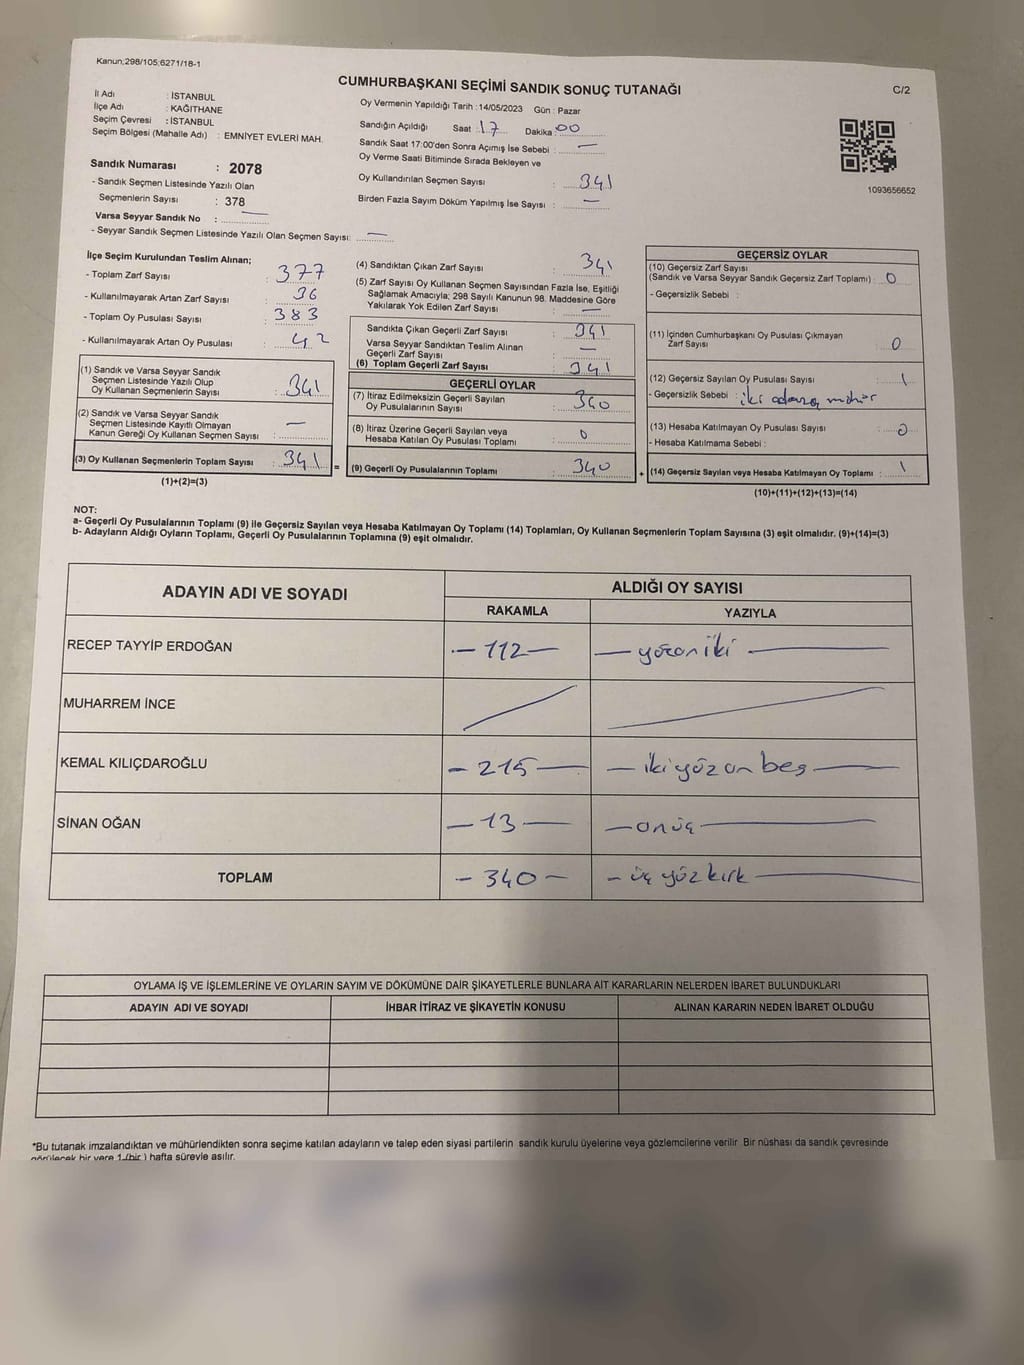 Kanun;298/105;6271/18-1
CUMHURBAŞKANI SEÇİMİ SANDIK SONUÇ TUTANAĞI
C/2
İl Adı : İSTANBUL
İlçe Adı : KAĞITHANE
Seçim Çevresi : İSTANBUL
Seçim Bölgesi (Mahalle Adı) : EMNİYET EVLERİ MAH.
Sandık Numarası : 2078
- Sandık Seçmen Listesinde Yazılı Olan
Seçmenlerin Sayısı : 378
Varsa Seyyar Sandık No : —
- Seyyar Sandık Seçmen Listesinde Yazılı Olan Seçmen Sayısı: —
Oy Vermenin Yapıldığı Tarih : 14/05/2023 Gün : Pazar
Sandığın Açıldığı Saat 17 Dakika : 00
Sandık Saat 17:00'den Sonra Açımış İse Sebebi : —
Oy Verme Saati Bitiminde Sırada Bekleyen ve
Oy Kullandırılan Seçmen Sayısı : 341
Birden Fazla Sayım Döküm Yapılmış İse Sayısı : —
1093656652
İlçe Seçim Kurulundan Teslim Alınan;
- Toplam Zarf Sayısı : 377
- Kullanılmayarak Artan Zarf Sayısı : 36
- Toplam Oy Pusulası Sayısı : 383
- Kullanılmayarak Artan Oy Pusulası : 42
(1) Sandık ve Varsa Seyyar Sandık
Seçmen Listesinde Yazılı Olup
Oy Kullanan Seçmenlerin Sayısı : 341
(2) Sandık ve Varsa Seyyar Sandık
Seçmen Listesinde Kayıtlı Olmayan
Kanun Gereği Oy Kullanan Seçmen Sayısı : —
(3) Oy Kullanan Seçmenlerin Toplam Sayısı : 341 =
(1)+(2)=(3)
(4) Sandıktan Çıkan Zarf Sayısı : 341
(5) Zarf Sayısı Oy Kullanan Seçmen Sayısından Fazla İse, Eşitliği
Sağlamak Amacıyla; 298 Sayılı Kanunun 98. Maddesine Göre
Yakılarak Yok Edilen Zarf Sayısı : —
Sandıkta Çıkan Geçerli Zarf Sayısı : 341
Varsa Seyyar Sandıktan Teslim Alınan
Geçerli Zarf Sayısı : —
(6) Toplam Geçerli Zarf Sayısı : 341
GEÇERLİ OYLAR
(7) İtiraz Edilmeksizin Geçerli Sayılan
Oy Pusulalarının Sayısı : 340
(8) İtiraz Üzerine Geçerli Sayılan veya
Hesaba Katılan Oy Pusulaları Toplamı : 0
(9) Geçerli Oy Pusulalarının Toplamı : 340 +
GEÇERSİZ OYLAR
(10) Geçersiz Zarf Sayısı
(Sandık ve Varsa Seyyar Sandık Geçersiz Zarf Toplamı) : 0
- Geçersizlik Sebebi :
(11) İçinden Cumhurbaşkanı Oy Pusulası Çıkmayan
Zarf Sayısı : 0
(12) Geçersiz Sayılan Oy Pusulası Sayısı : 1
- Geçersizlik Sebebi : iki adaya mühür
(13) Hesaba Katılmayan Oy Pusulası Sayısı : 0
- Hesaba Katılmama Sebebi :
(14) Geçersiz Sayılan veya Hesaba Katılmayan Oy Toplamı : 1
(10)+(11)+(12)+(13)=(14)
NOT:
a- Geçerli Oy Pusulalarının Toplamı (9) ile Geçersiz Sayılan veya Hesaba Katılmayan Oy Toplamı (14) Toplamları, Oy Kullanan Seçmenlerin Toplam Sayısına (3) eşit olmalıdır. (9)+(14)=(3)
b- Adayların Aldığı Oyların Toplamı, Geçerli Oy Pusulalarının Toplamına (9) eşit olmalıdır.
ADAYIN ADI VE SOYADI ALDIĞI OY SAYISI
RAKAMLA YAZIYLA
RECEP TAYYİP ERDOĞAN — 112 — — yüzoniki —
MUHARREM İNCE
KEMAL KILIÇDAROĞLU — 215 — — ikiyüz on beş —
SİNAN OĞAN — 13 — — onüç —
TOPLAM — 340 — — üç yüz kırk —
OYLAMA İŞ VE İŞLEMLERİNE VE OYLARIN SAYIM VE DÖKÜMÜNE DAİR ŞİKAYETLERLE BUNLARA AİT KARARLARIN NELERDEN İBARET BULUNDUKLARI
ADAYIN ADI VE SOYADI İHBAR İTİRAZ VE ŞİKAYETİN KONUSU ALINAN KARARIN NEDEN İBARET OLDUĞU
*Bu tutanak imzalandıktan ve mühürlendikten sonra seçime katılan adayların ve talep eden siyasi partilerin sandık kurulu üyelerine veya gözlemcilerine verilir Bir nüshası da sandık çevresinde
görülecek bir yere 1 (bir ) hafta süreyle asılır.